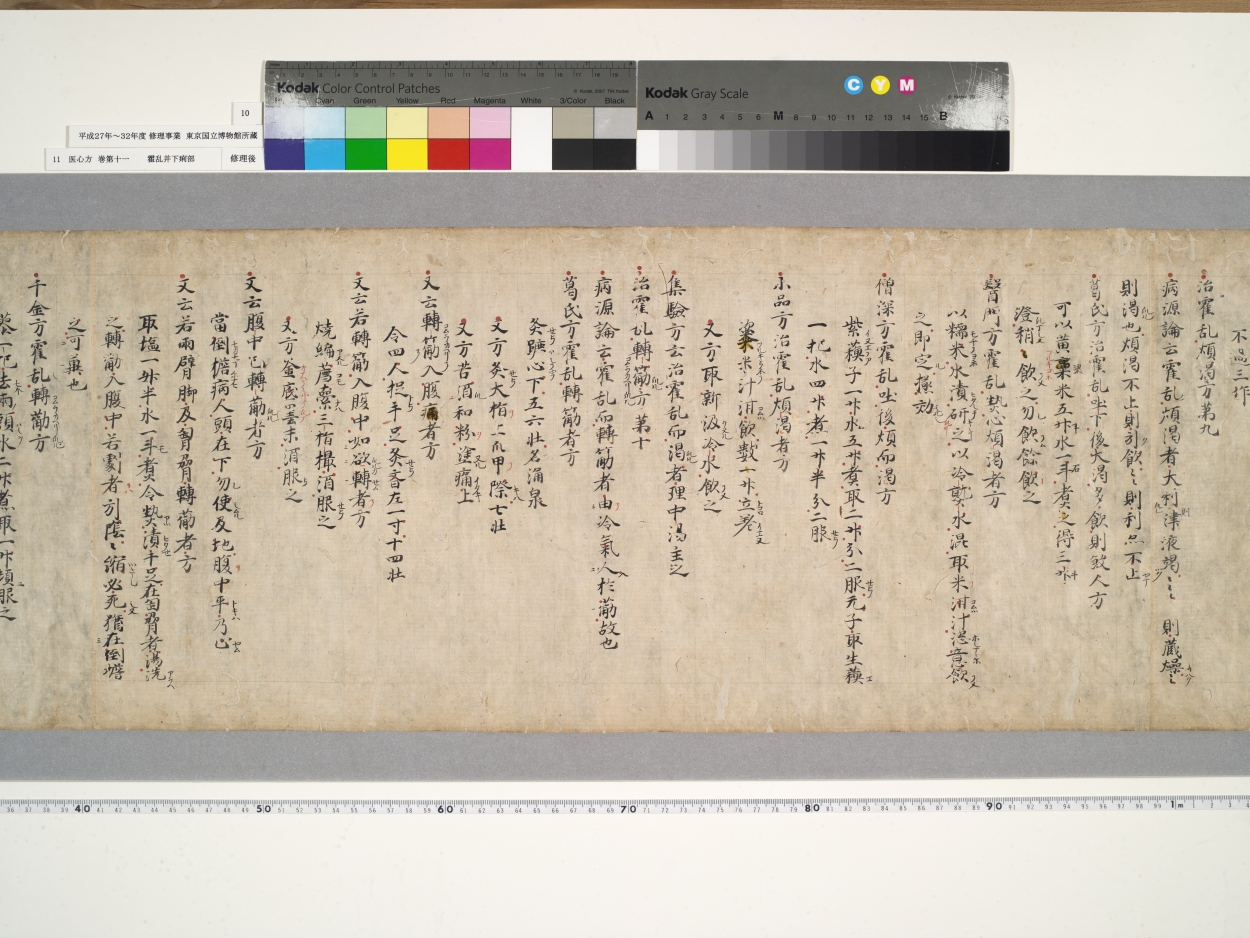 Kodak Color Control Patches
Cyan Green Yellow Red Magenta White 3/Color Black
Kodak Gray Scale
C Y M
A 1 2 3 4 5 6 M 8 9 10 11 12 13 14 15 B
10
平成27年～32年度 修理事業 東京国立博物館所蔵
11 医心方 巻第十一 霍乱并下痢部 修理後
治霍乱煩渇方第九
病源論云霍乱煩渇者大利津液竭〻則蔵燥〻
則渇也煩渇不止則引飲〻則利亦不止
葛氏方治霍乱吐下後大渇多飲則敚人方
可以黄米五升水一斗煮之得三升
澄稍〻飲之勿飲餘飲之
醫門方霍乱熱心煩渇者方
以糯米水漬研之以冷熟水混取米泔汁恣意飲
之即定極効
僧深方霍乱吐後煩而渇方
紫蘇子一升水五升煮取二升分二服无子取生蘇
一把水四升煮一升半分二服
小品方治霍乱煩渇者方
粱米汁泔飲數一升立差
又方取新汲冷水飲之
集驗方云治霍乱而渇者理中湯主之
治霍乱轉筋方第十
病源論云霍乱而轉筋者由冷氣入於筋故也
葛氏方霍乱轉筋者方
灸蹶心下五六壮名涌泉
又方灸大指上爪甲際七壮
又方苦酒和粉塗痛上
又云轉筋入腹痛者方
令四人捉手足灸斎左一寸十四壮
又云若轉筋入腹中如欲轉者方
燒編薦索三指撮酒服之
又方釜底墨末酒服之
又云腹中已轉筋者方
當倒擔病人頭在下勿使及地腹中平乃止
又云若兩臂脚及胷脅轉筋者方
取塩一升半水一斗煮令熱漬手足在胷脅者湯洗
之轉筋入腹中若劇者引陰〻縮必死猶在倒擔
之可無也
千金方霍乱轉筋方
40 50 60 70 80 90 1m